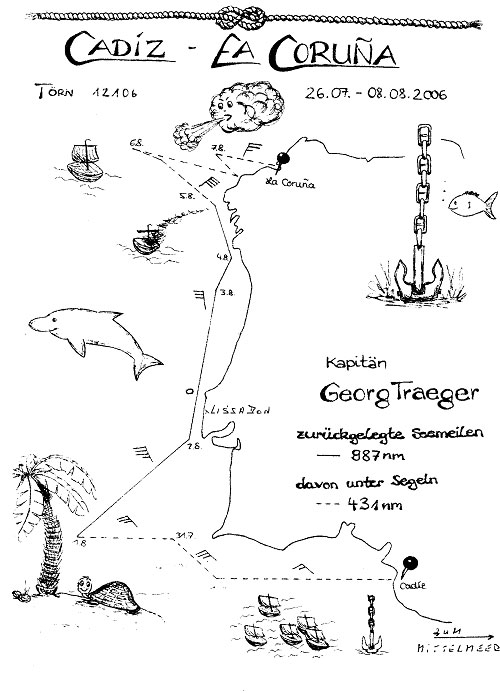 CADIZ - LA CORUÑA
TÖRN 12106
26.07. - 08.08.2006
6.8.
7.8.
La Coruña
5.8.
4.8.
3.8.
Kapitän
Georg Traeger
LISSABON
zurückgelegte Seemeilen
887nm
2.8.
davon unter Segeln
431nm
1.8
31.7.
Cadiz
ZUM
MITTELMEER